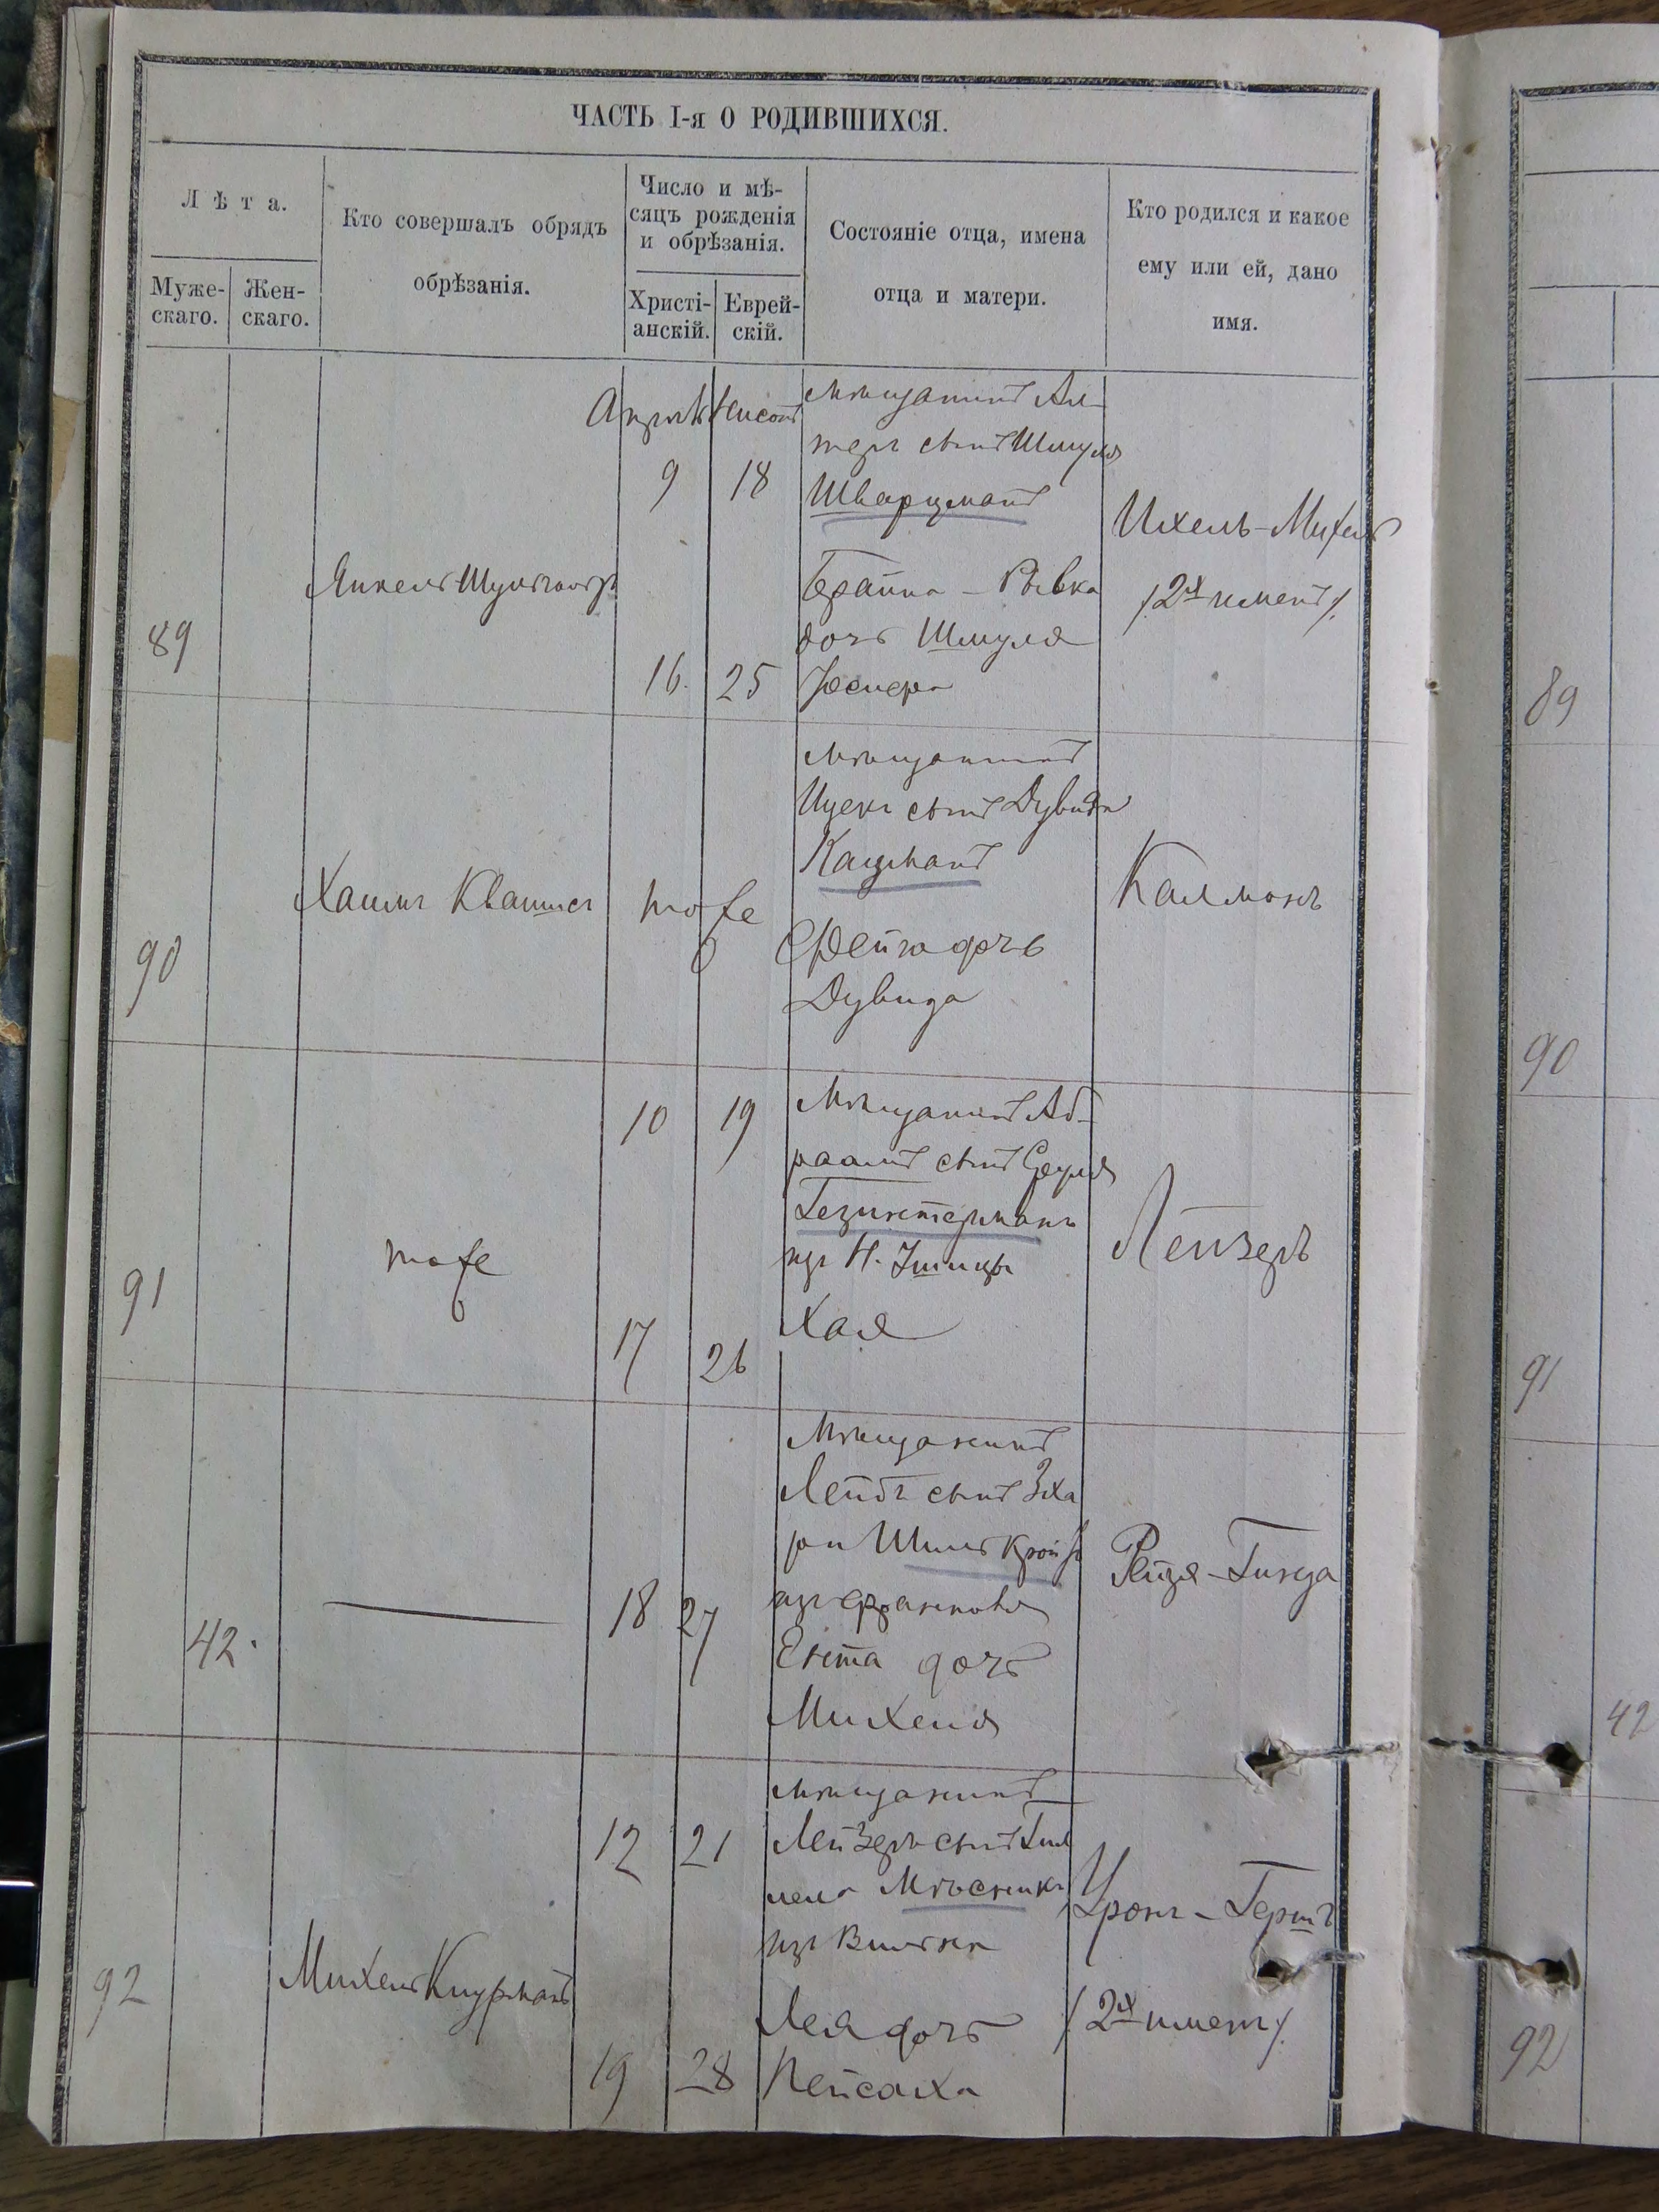 ЧАСТЬ I-я О РОДИВШИХСЯ.
Лѣта.
Муже-
скаго.
Жен-
скаго.
Кто совершалъ обрядъ
обрѣзанія.
Число и мѣ-
сяцъ рожденія
и обрѣзанія.
Христі-
анскій.
Еврей-
скій.
Состояніе отца, имена
отца и матери.
Кто родился и какое
ему или ей, дано
имя.
89
Янкель
Апрѣль Нисонъ
9 18
16. 25
Мѣщанинъ Ал-
теръ сынъ Шмуля
Шварцманъ
Брайна-Рывка
дочь Шмуля
Ихель-Михель
/2хъ именъ/.
90
Хаимъ Квашис
тоже
Мѣщанинъ
Ицекъ сынъ Дувида
Кацманъ
Фейга дочь
Дувида
Калмонъ
91
тоже
10 19
17 26
Мѣщанинъ Аб-
рамъ сынъ Сруля
изъ Н. Ушицы
Хая
Лейзеръ
42.
18 27
Мѣщанинъ
Лейбъ сынъ Зха
ри Шилькройтъ
изъ Франковки
Ента дочь
Михеля
Рейзя-Гинда
92
Михель Кнурманъ
12 21
19 28
Мѣщанинъ
Лейзеръ сынъ Гил
лела Мѣсникъ
изъ
Лея дочь
Пейсаха
Уронъ-Гершъ
/2хъ именъ/.
89
90
91
42
92